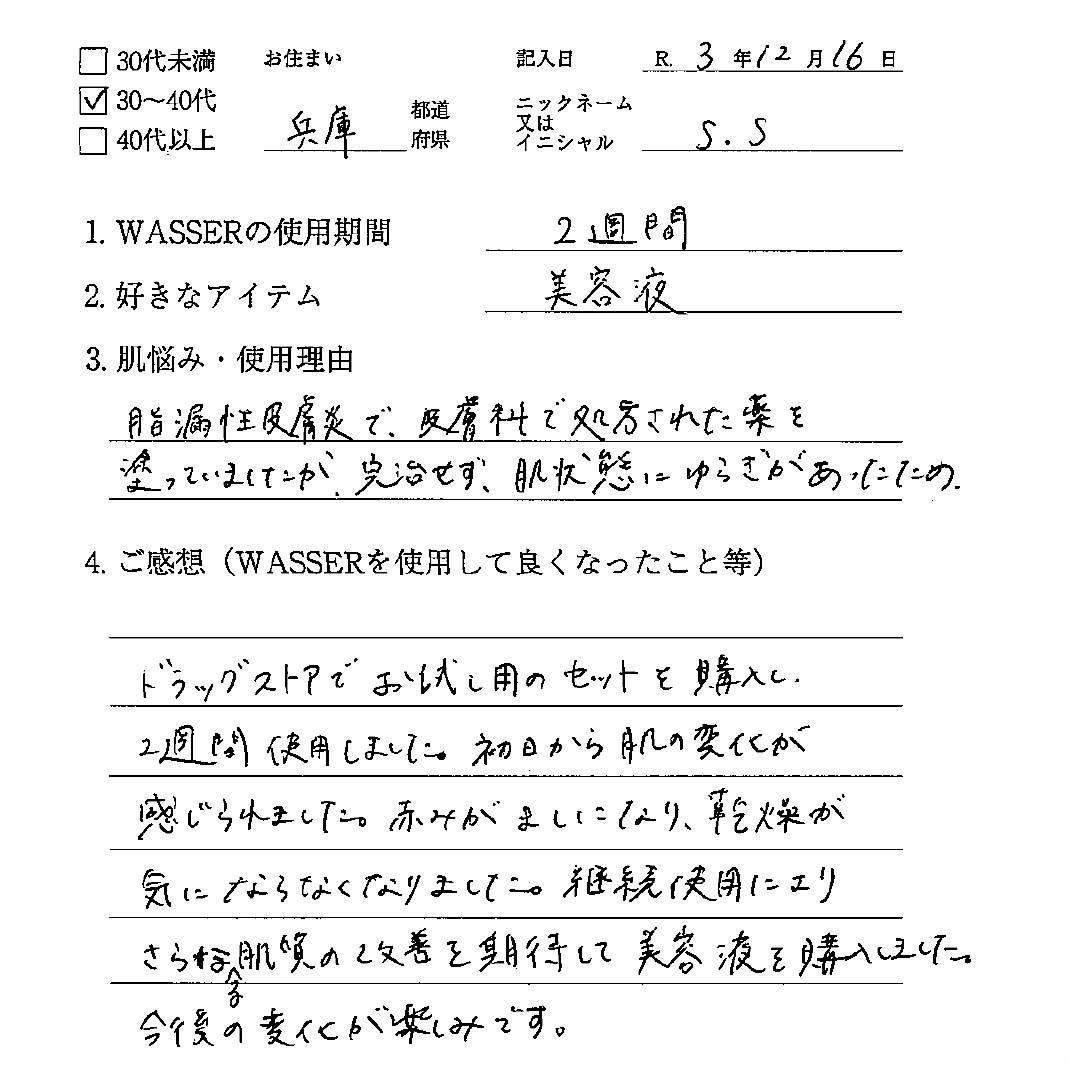 30代未満 お住まい 記入日 R. 3 年 12 月 16 日
30〜40代
兵庫 都道府県 ニックネーム又はイニシャル S.S
40代以上
1. WASSERの使用期間 2週間
2. 好きなアイテム 美容液
3. 肌悩み・使用理由
脂漏性皮膚炎で、皮膚科で処方された薬を
塗っていましたが、完治せず、肌状態にゆらぎがあったため.
4. ご感想（WASSERを使用して良くなったこと等）
ドラッグストアでお試し用のセットを購入し、
2週間使用しました。初日から肌の変化が
感じられました。赤みがましになり、乾燥が
気にならなくなりました。継続使用により
さらなる肌質の改善を期待して美容液を購入しました。
今後の変化が楽しみです。